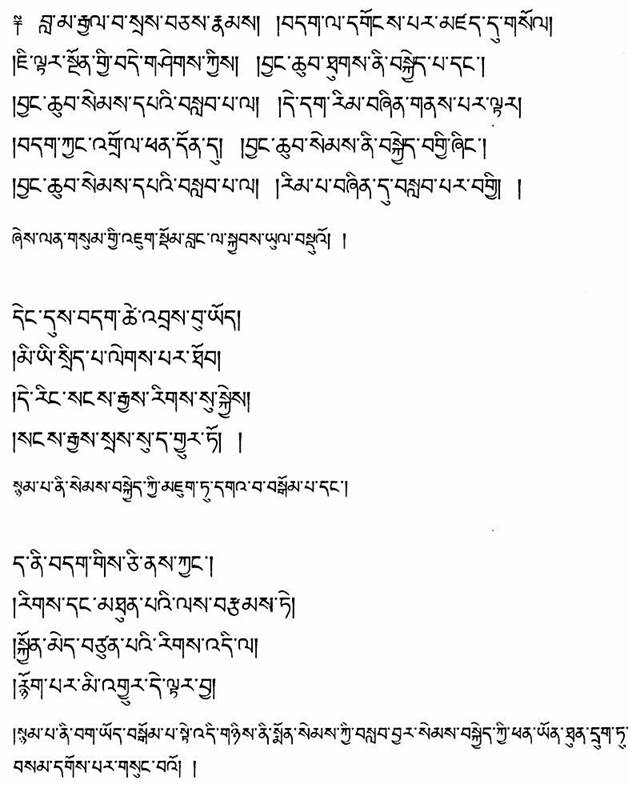 ༈ བླ་མ་རྒྱལ་བ་སྲས་བཅས་རྣམས། །བདག་ལ་དགོངས་པར་མཛད་དུ་གསོལ།
།ཇི་ལྟར་སྔོན་གྱི་བདེ་གཤེགས་ཀྱིས། །བྱང་ཆུབ་ཐུགས་ནི་བསྐྱེད་པ་དང་།
།བྱང་ཆུབ་སེམས་དཔའི་བསླབ་པ་ལ། །དེ་དག་རིམ་བཞིན་གནས་པར་ལྟར།
།བདག་ཀྱང་འགྲོ་ལ་ཕན་དོན་དུ། །བྱང་ཆུབ་སེམས་ནི་བསྐྱེད་བགྱི་ཞིང་།
།བྱང་ཆུབ་སེམས་དཔའི་བསླབ་པ་ལ། །རིམ་པ་བཞིན་དུ་བསླབ་པར་བགྱི། །
ཞེས་ལན་གསུམ་གྱི་འཇུག་སྡོམ་བླང་ལ་སྐྱབས་ཡུལ་བསྡུའོ། །
དེང་དུས་བདག་ཚེ་འབྲས་བུ་ཡོད།
།མི་ཡི་སྲིད་པ་ལེགས་པར་ཐོབ།
།དེ་རིང་སངས་རྒྱས་རིགས་སུ་སྐྱེས།
།སངས་རྒྱས་སྲས་སུ་ད་གྱུར་ཏོ། །
སྙམ་པ་ནི་སེམས་བསྐྱེད་ཀྱི་མཇུག་ཏུ་དགའ་བ་བསྒོམ་པ་དང་།
ད་ནི་བདག་གིས་ཅི་ནས་ཀྱང་།
།རིགས་དང་མཐུན་པའི་ལས་བརྩམས་ཏེ།
།སྐྱོན་མེད་བཙུན་པའི་རིགས་འདི་ལ།
།རྙོག་པར་མི་འགྱུར་དེ་ལྟར་བྱ།
།སྙམ་པ་ནི་བག་ཡོད་བསྒོམ་པ་སྟེ་འདི་གཉིས་ནི་སྨོན་སེམས་ཀྱི་བསླབ་བྱར་སེམས་བསྐྱེད་ཀྱི་ཕན་ཡོན་ཐུན་དྲུག་ཏུ་
བསམ་དགོས་པར་གསུང་བའོ། །